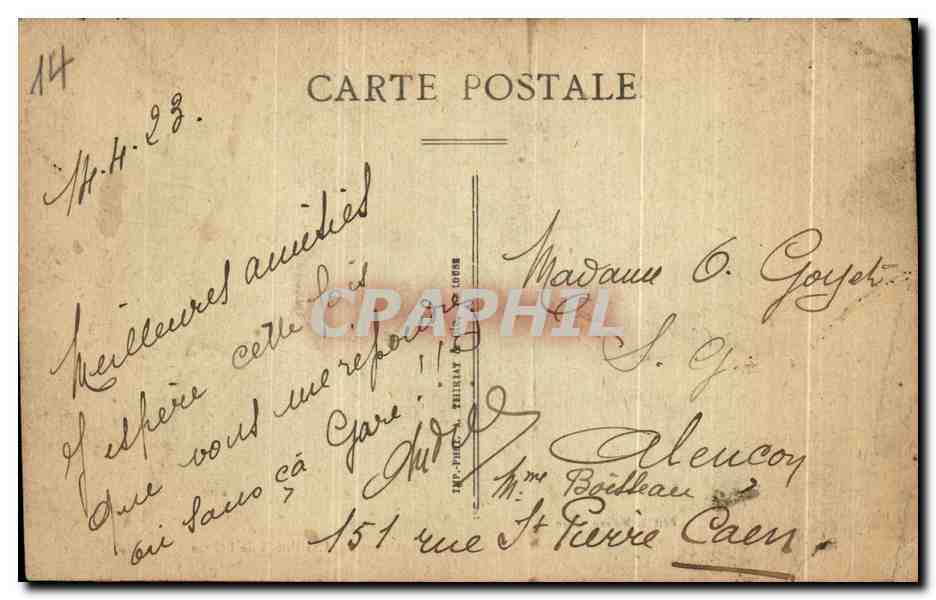 14
CARTE POSTALE
14.4.23.
Meilleures amitiés
J'espère cette fois
que vous me répondre
ou sans çà Gare! !!!
André
IMP.-PHOT. A. THIRIAT &
CPRAPHIL
Madame O. Goyet
S. G.
Alencon
Mme Boisseau
151 rue St Pierre Caen.